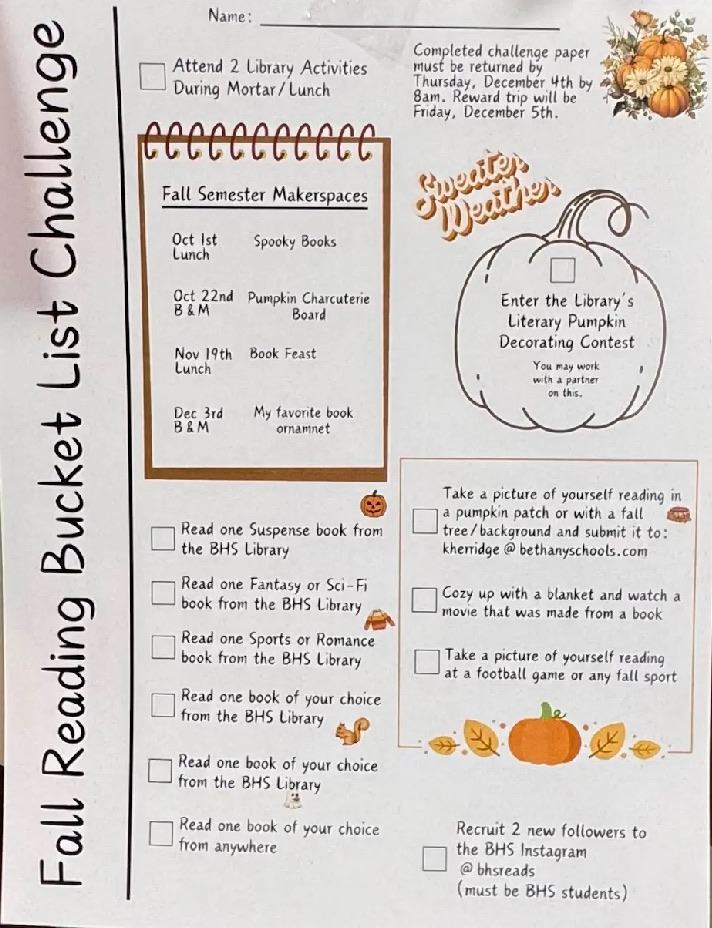 Fall Reading Bucket List Challenge
Name:
Attend 2 Library Activities
During Mortar/Lunch
Completed challenge paper
must be returned by
Thursday, December 4th by
8am. Reward trip will be
Friday, December 5th.
Fall Semester Makerspaces
Oct 1st Spooky Books
Lunch
Oct 22nd Pumpkin Charcuterie
B & M Board
Nov 19th Book Feast
Lunch
Dec 3rd My favorite book
B & M ornamnet
Sweater
Weather
Enter the Library's
Literary Pumpkin
Decorating Contest
You may work
with a partner
on this.
Read one Suspense book from
the BHS Library
Read one Fantasy or Sci-Fi
book from the BHS Library
Read one Sports or Romance
book from the BHS Library
Read one book of your choice
from the BHS Library
Read one book of your choice
from the BHS Library
Read one book of your choice
from anywhere
Take a picture of yourself reading in
a pumpkin patch or with a fall
tree/background and submit it to:
kherridge@bethanyschools.com
Cozy up with a blanket and watch a
movie that was made from a book
Take a picture of yourself reading
at a football game or any fall sport
Recruit 2 new followers to
the BHS Instagram
@bhsreads
(must be BHS students)